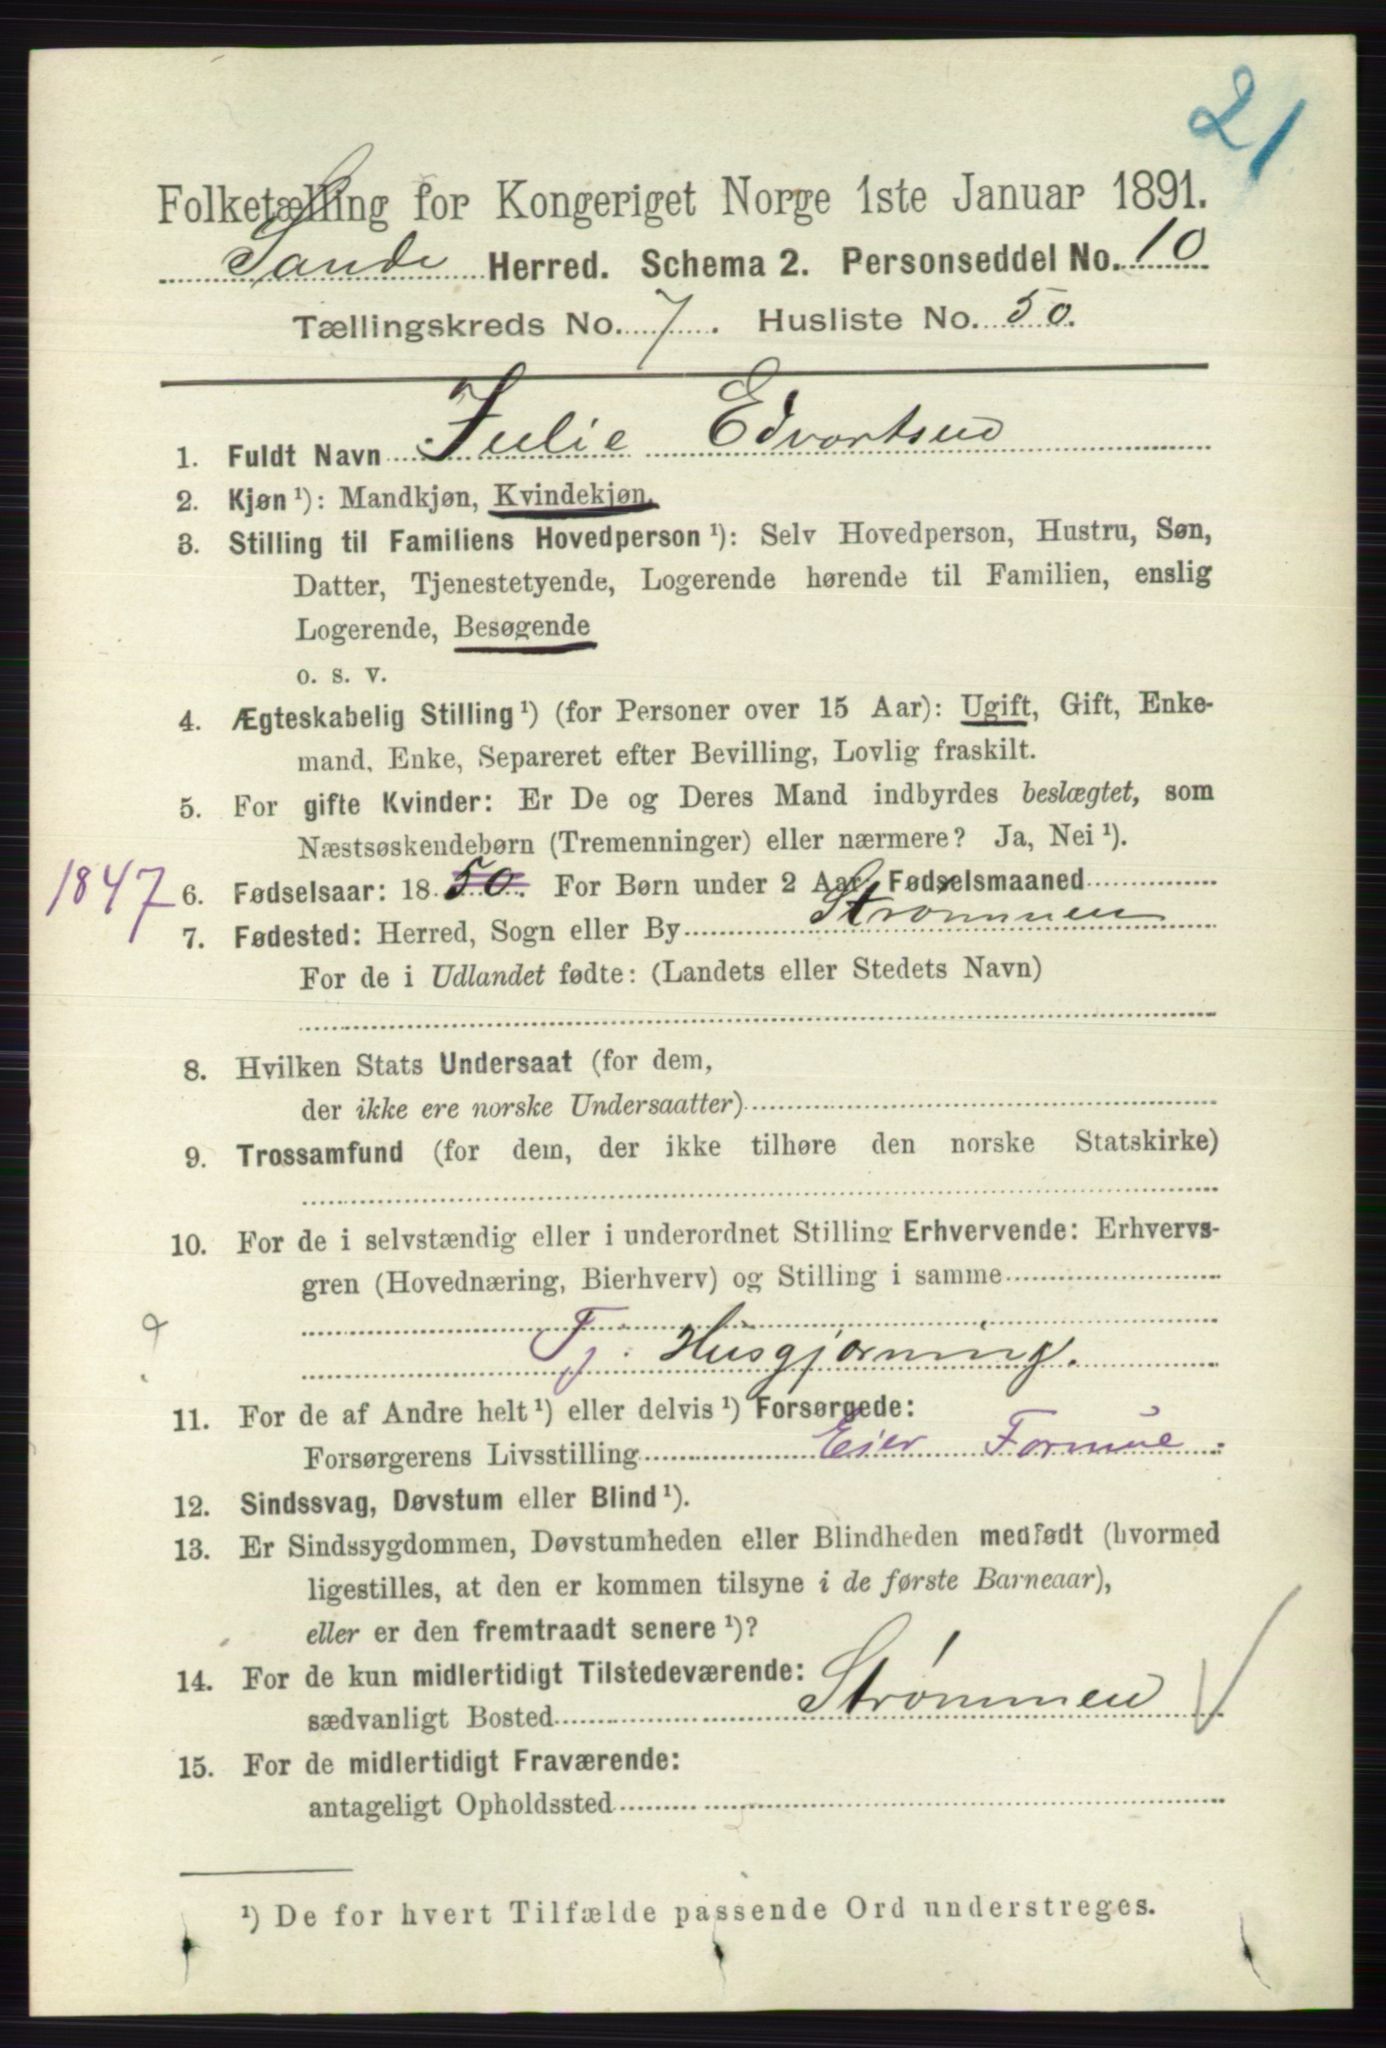 21
Folketælling for Kongeriget Norge 1ste Januar 1891.
Sande Herred. Schema 2. Personseddel No. 10
Tællingskreds No. 7. Husliste No. 50.
1. Fuldt Navn Julie Edvartsen
2. Kjøn ¹): Mandkjøn, Kvindekjøn.
3. Stilling til Familiens Hovedperson ¹): Selv Hovedperson, Hustru, Søn,
Datter, Tjenestetyende, Logerende hørende til Familien, enslig
Logerende, Besøgende
o. s. v.
4. Ægteskabelig Stilling ¹) (for Personer over 15 Aar): Ugift, Gift, Enke-
mand, Enke, Separeret efter Bevilling, Lovlig fraskilt.
5. For gifte Kvinder: Er De og Deres Mand indbyrdes beslægtet, som
Næstsøskendebørn (Tremenninger) eller nærmere? Ja, Nei ¹).
1847 6. Fødselsaar: 18 50. For Børn under 2 Aar, Fødselsmaaned
7. Fødested: Herred, Sogn eller By Strømmen
For de i Udlandet fødte: (Landets eller Stedets Navn)
8. Hvilken Stats Undersaat (for dem,
der ikke ere norske Undersaatter)
9. Trossamfund (for dem, der ikke tilhøre den norske Statskirke)
10. For de i selvstændig eller i underordnet Stilling Erhvervende: Erhvervs-
gren (Hovednæring, Bierhverv) og Stilling i samme
Tj. Husgjorning.
11. For de af Andre helt ¹) eller delvis ¹) Forsørgede:
Forsørgerens Livsstilling Eier Formue.
12. Sindssvag, Døvstum eller Blind ¹).
13. Er Sindssygdommen, Døvstumheden eller Blindheden medfødt (hvormed
ligestilles, at den er kommen tilsyne i de første Barneaar),
eller er den fremtraadt senere ¹)?
14. For de kun midlertidigt Tilstedeværende:
sædvanligt Bosted Strømmen
15. For de midlertidigt Fraværende:
antageligt Opholdssted
¹) De for hvert Tilfælde passende Ord understreges.